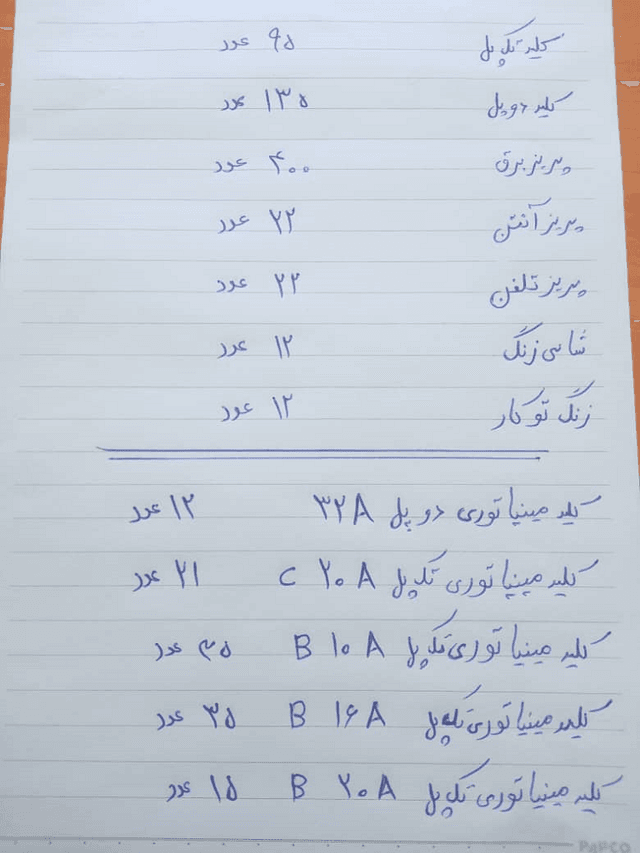 کلید تک پل ۹۵ عدد
کلید دوپل ۱۳۵ عدد
پریز برق ۴۰۰ عدد
پریز آنتن ۲۲ عدد
پریز تلفن ۲۲ عدد
شاسی زنگ ۱۲ عدد
زنگ توکار ۱۲ عدد
کلید مینیاتوری دوپل ۳۲A ۱۲ عدد
کلید مینیاتوری تک پل C ۲۰ A ۲۱ عدد
کلید مینیاتوری تک پل B ۱۰ A ۴۵ عدد
کلید مینیاتوری تک پل B ۱۶ A ۳۵ عدد
کلید مینیاتوری تک پل B ۲۰ A ۱۵ عدد
PAPCO